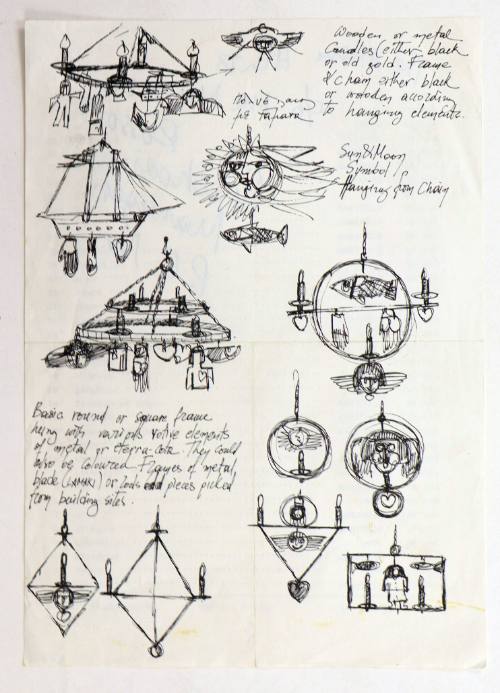 Wooden or metal
Candles (either black
or old gold. Frame
& chain either black
or wooden according
to hanging elements.
με ταματα
Sun&Moon
Symbol
Hanging from Chain
Basic round or square frame
hung with various votive elements
of metal or terra-cota. They could
also be coloured figures of metal,
black (LAMARI) or tools pieces picked
from building sites.